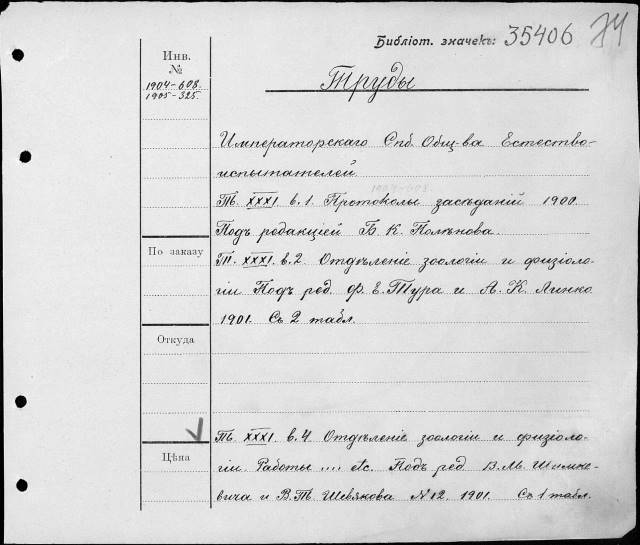 Библіот. значекъ: 35406
Инв.
№
1904-608.
1905-325.
Труды
Императорскаго Спб. Общ-ва Естество-
испытателей.
1904-608
Тъ. XXXI в. 1. Протоколы засѣданій 1900.
Подъ редакціей Б. К. Полѣнова.
По заказу
Т. XXXI. в. 2. Отдѣленіе зоологіи и физіоло-
гіи Подъ ред. Ф. Е. Тура и А. К. Линко
1901. Съ 2 табл.
Откуда
Тъ. XXXI. в. 4 Отдѣленіе зоологіи и физіоло-
Цѣна
гіи. Работы .... etc. Подъ ред В. М. Шимке-
вича и В. Т. Шевякова N 12. 1901. Съ 1 табл.